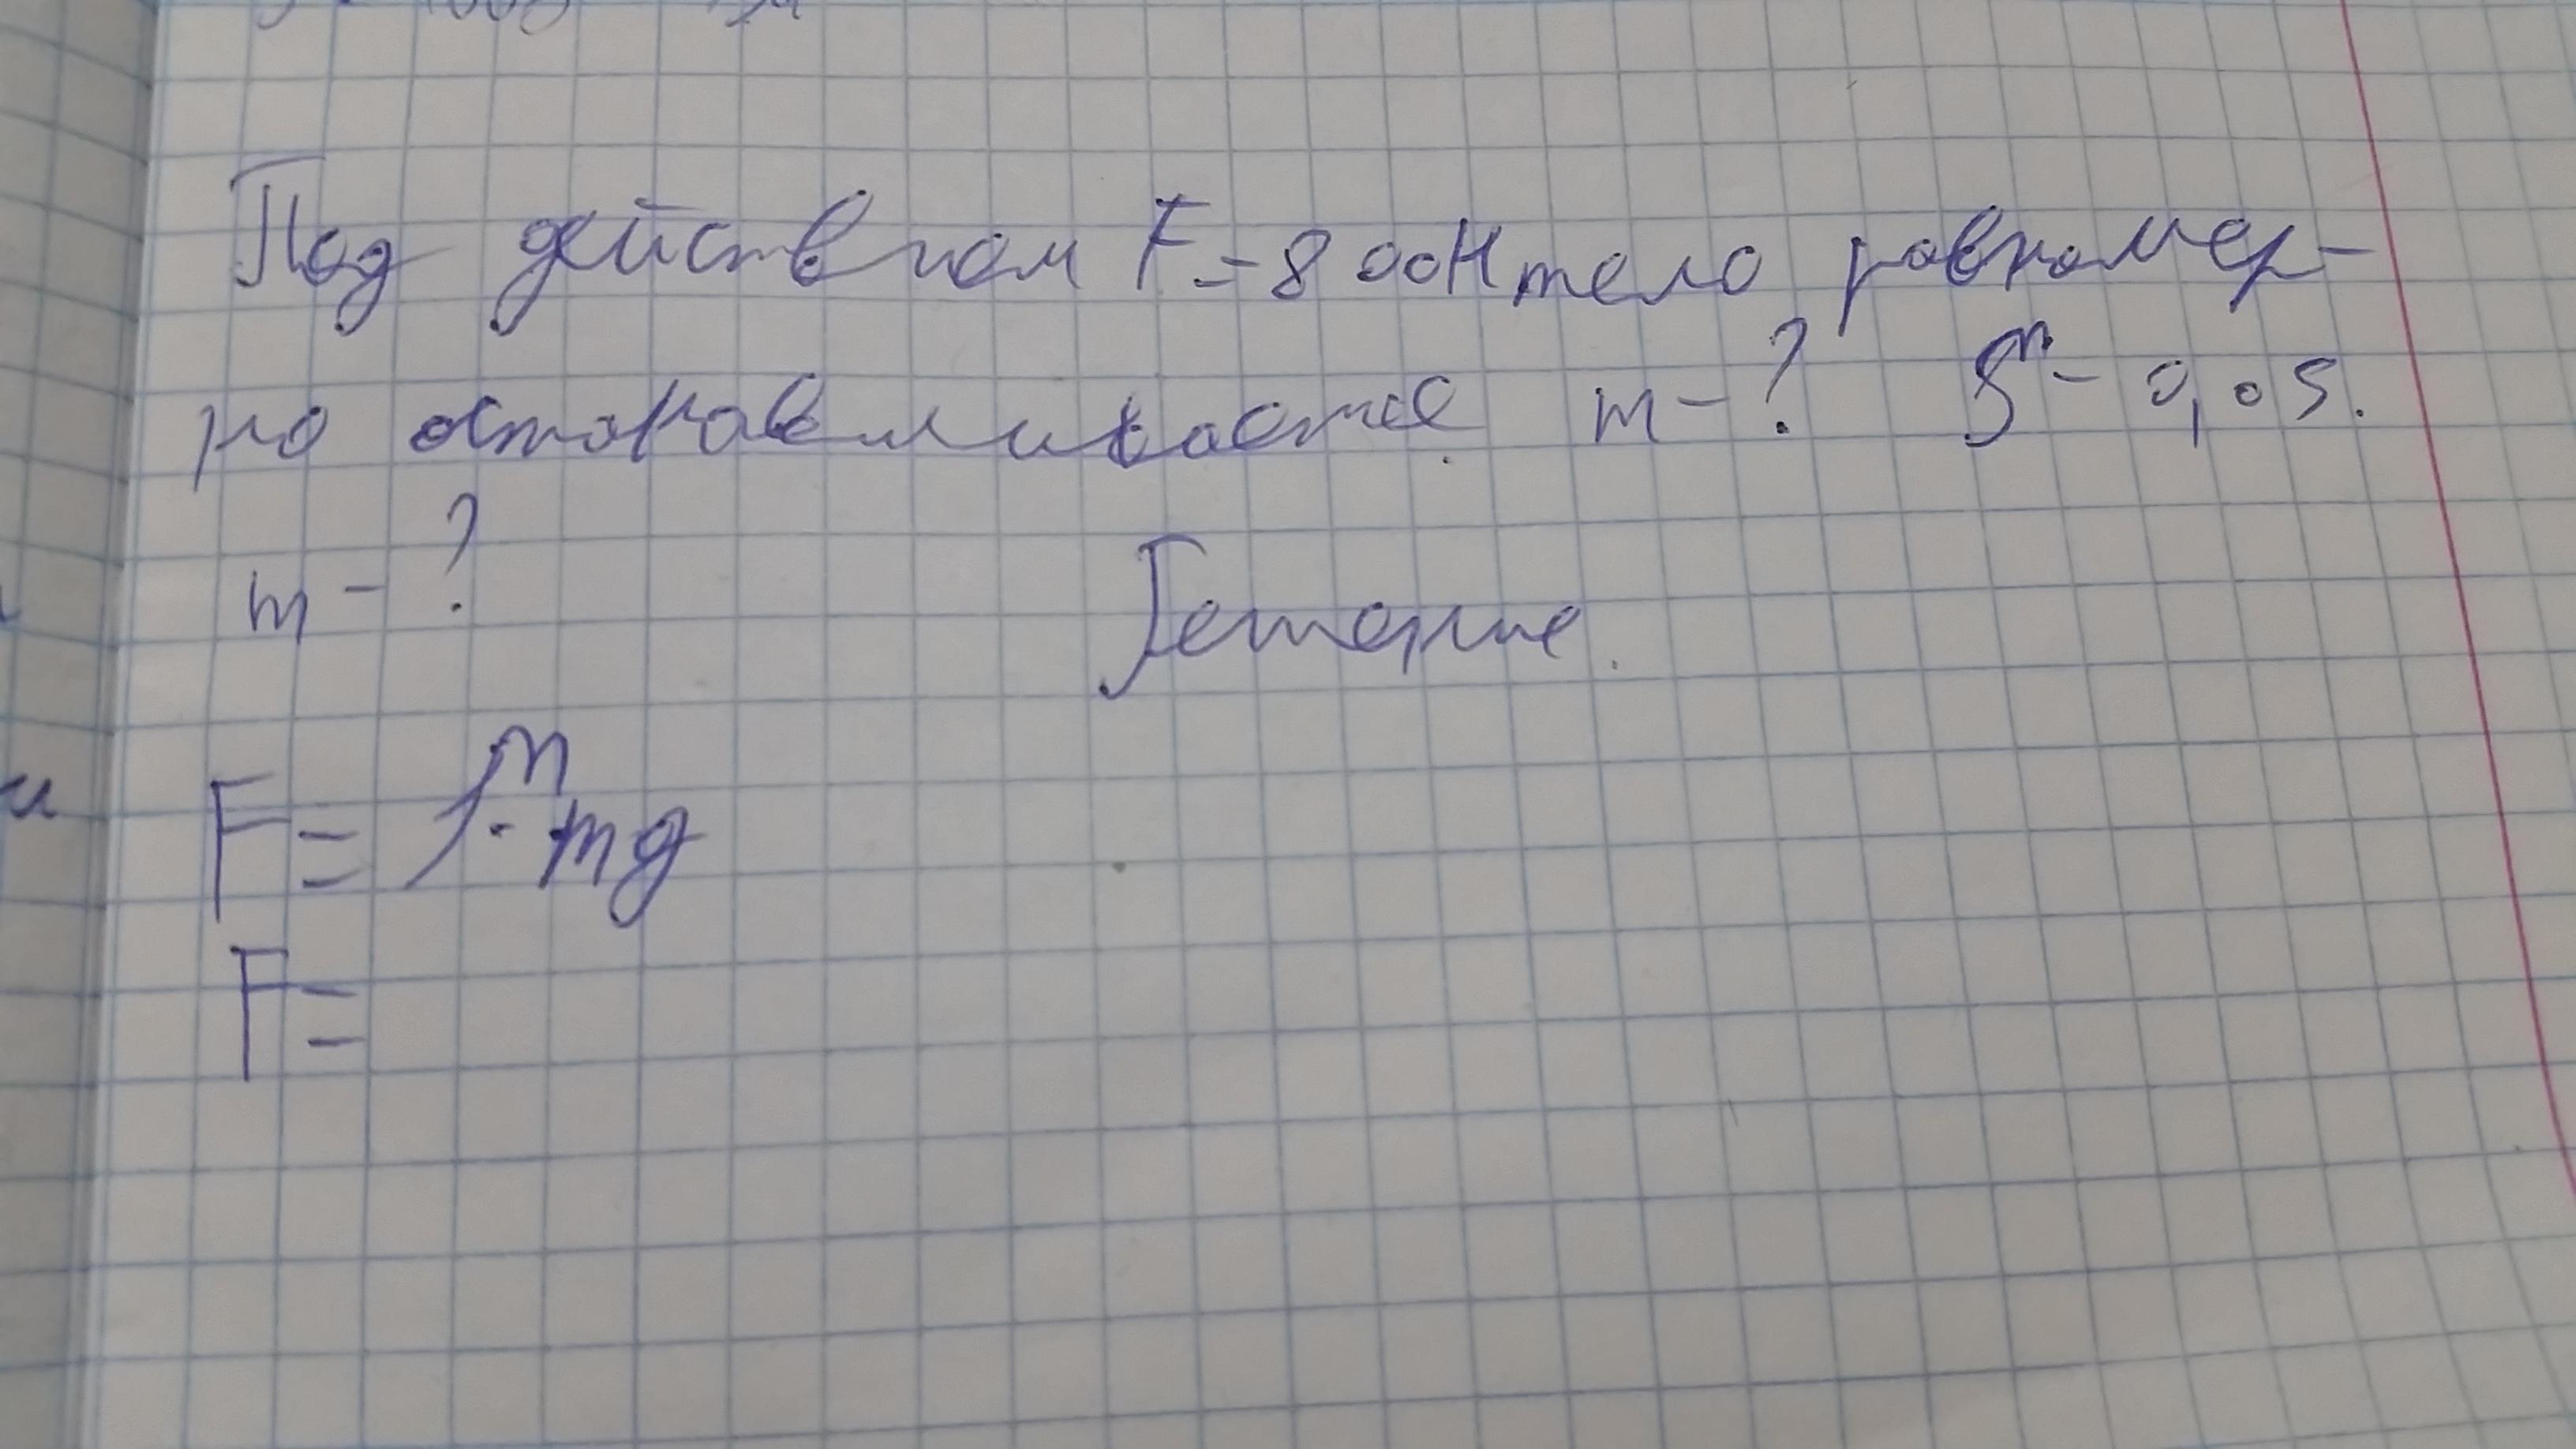 Под действием F = 800Н тело равномер-
но останавливается. m - ? μ - 0,05.
m - ?
Решение.
F = μ · mg
F =